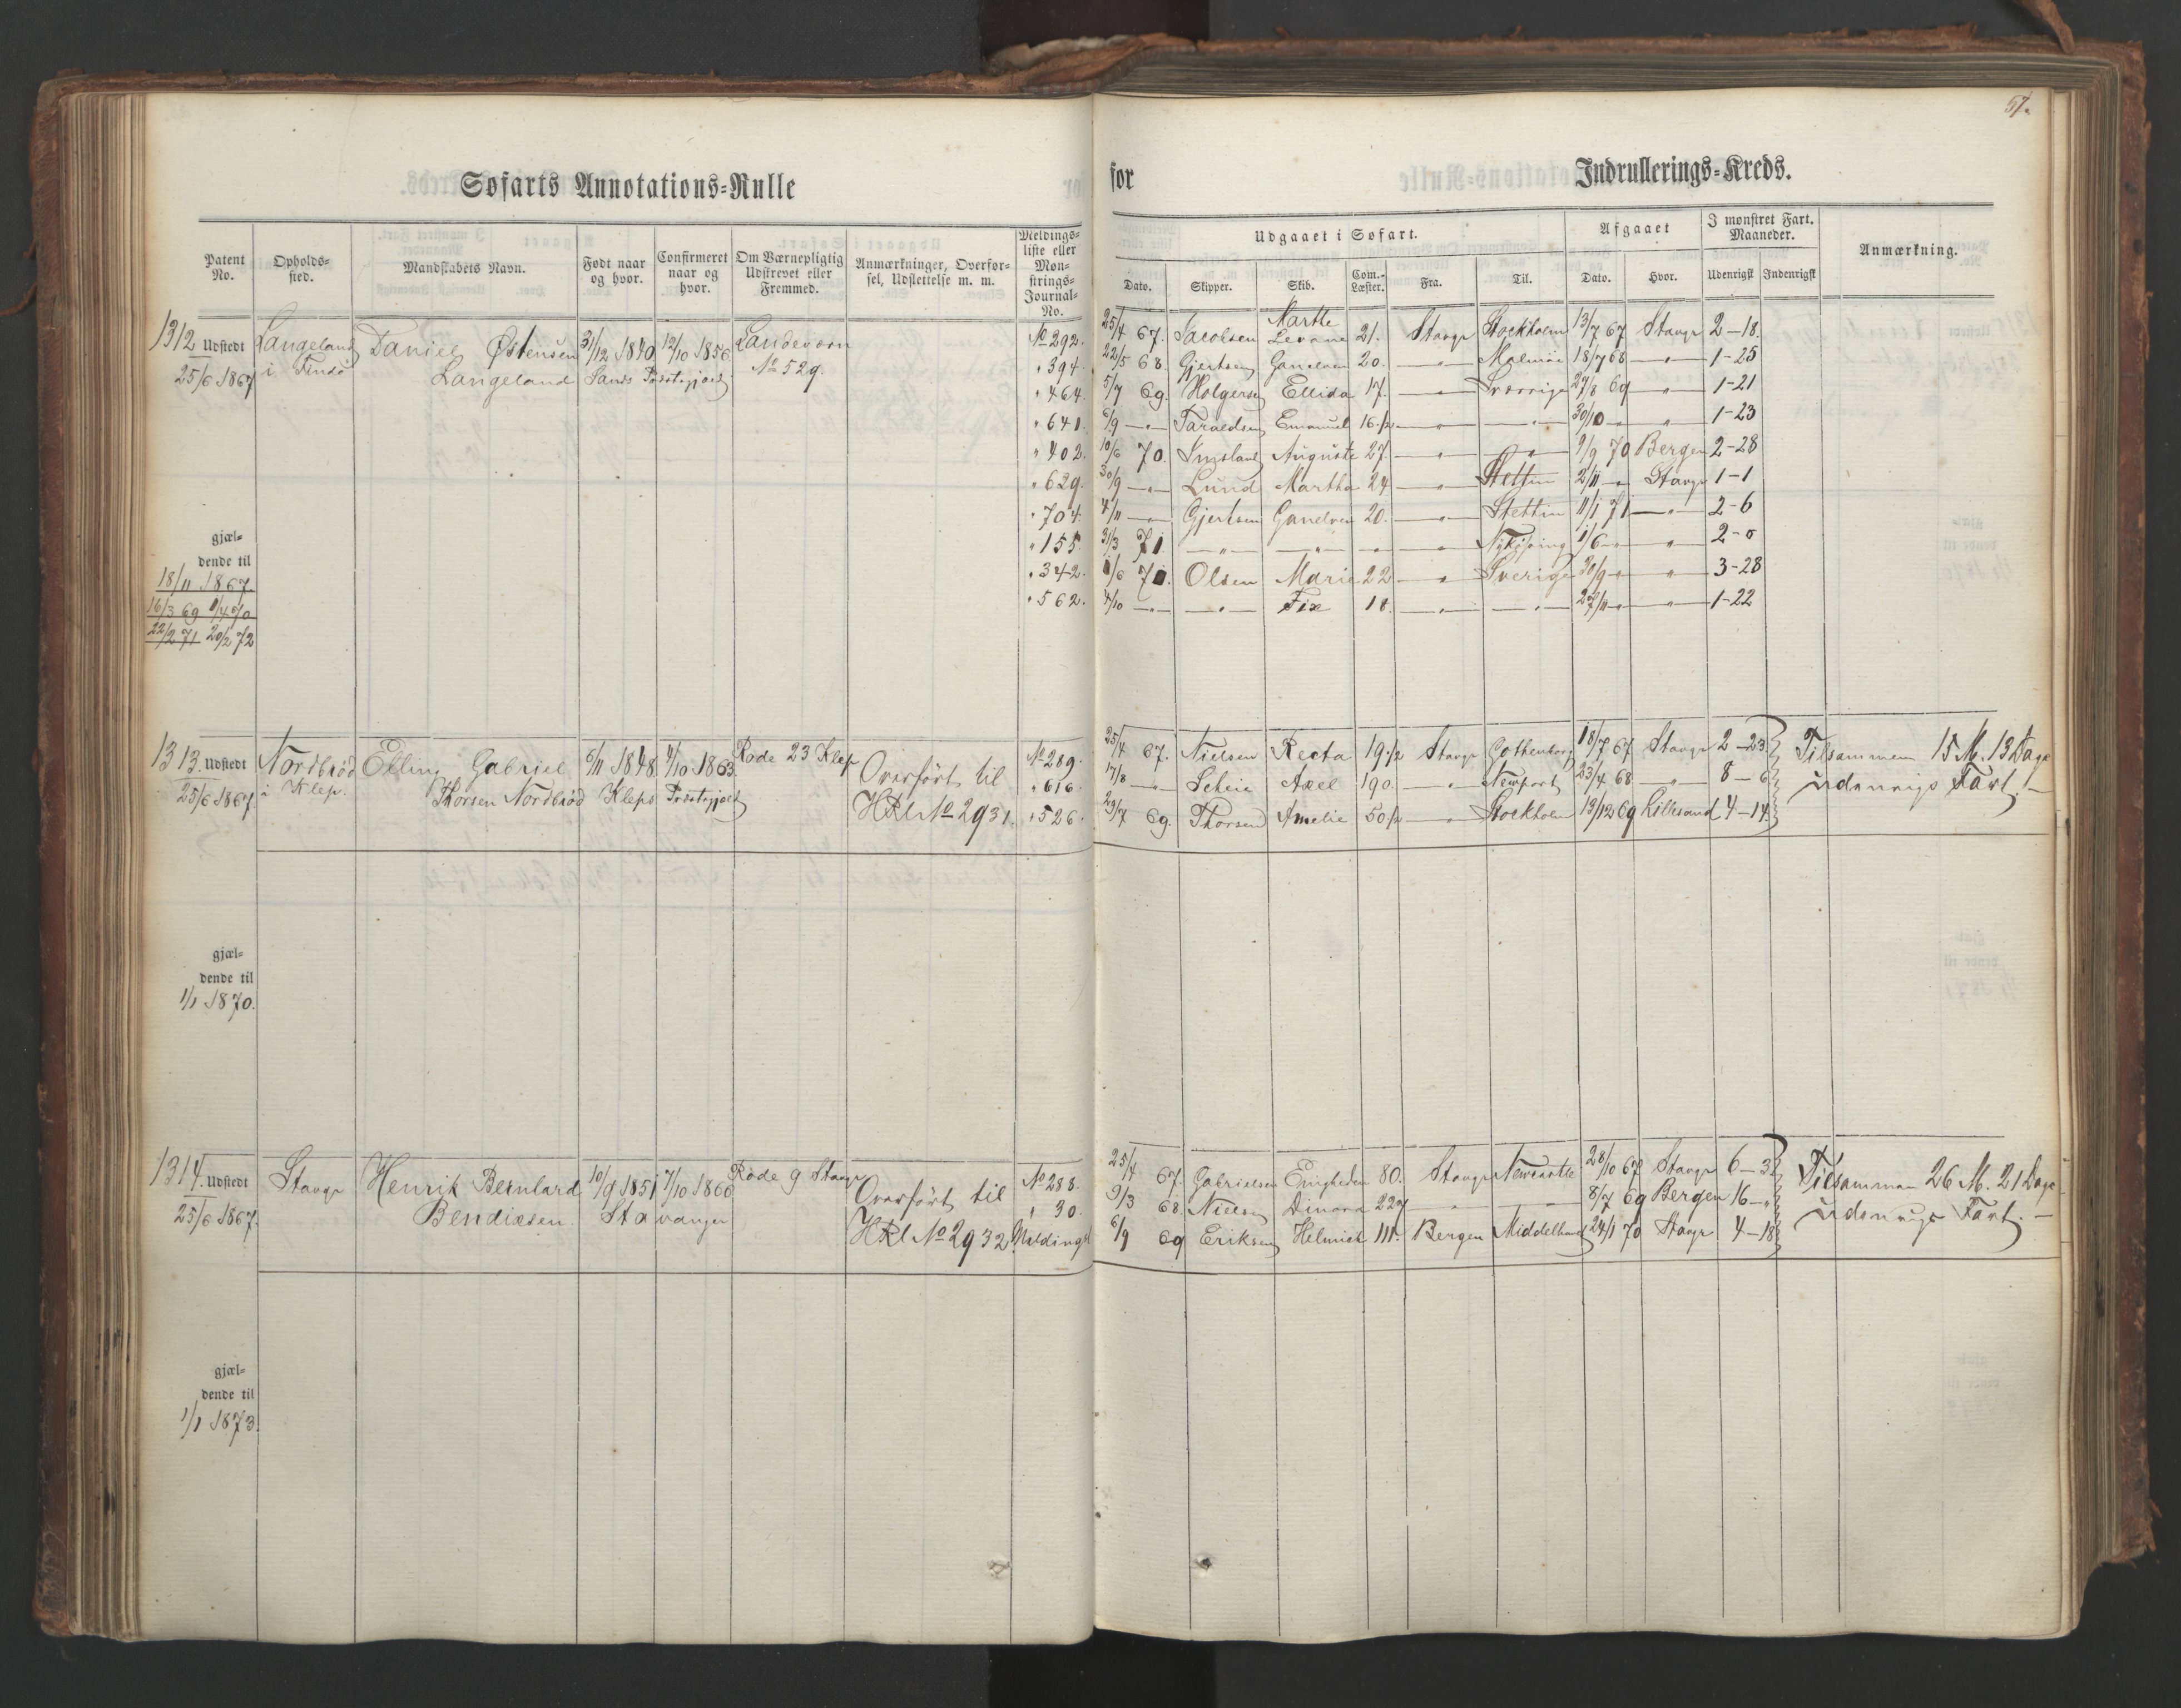 57.
Søfarts Annotations-Rulle
for Indrullerings-Kreds.
Patent No.
Opholds-sted.
Mandskabets Navn.
Født naar og hvor.
Confirmeret naar og hvor.
Om Værnepligtig Udskrevet eller Fremmed.
Anmærkninger, Overfør-sel, Udslettelse m. m.
Meldings-liste eller Møn-strings-Journal-No.
Udgaaet i Søfart.
Afgaaet
I mønstret Fart. Maaneder.
Anmærkning.
Dato. Skipper. Skib. Com.-Læster. Fra. Til. Dato. Hvor. Udenrigsk Indenrigsk
1312 Udstedt Langeland Daniel Østensen 31/12 1840 12/10 1856 Landeværn
25/6 1867 i Findø Langeland Sands Præstegjæld No 529.
No 292. 25/4 67. Jacobsen Marthe Levane 21. Stavgr Stockholm 13/7 67 Stavgr 2-18.
" 394. 22/5 68. Gjertsen Ganelven 20. —"— Malmöe 18/7 68 —"— 1-25
" 464. 5/7 69. Holgersen Ellida 17. —"— Sverrige 27/8 69 —"— 1-21
" 641. 6/9 —"— Taraldsen Emanuel 16 1/2 —"— —"— 30/10 —"— 1-23
" 402. 10/6 70. Imsland Auguste 27 —"— —"— 9/9 70 Bergen 2-28
" 629. 30/9 —"— Lund Martha 24 —"— Stettin 2/11 —"— Stavgr 1-1
" 704. 4/11 —"— Gjertsen Ganelven 20. —"— Stettin 11/1 71 —"— 2-6
" 155. 31/3 71. —"— —"— —"— —"— Nykjöping 1/6 —"— 2-0
" 342. 1/6 71. Olsen Marie 22 —"— Sverige 30/9 —"— 3-28
" 562. 4/10 —"— —"— Fix 18. —"— —"— 27/11 —"— 1-22
gjæl-
dende til
18/11 1867.
16/3 69 1/4 70
22/2 71 20/2 72
1313. Udstedt Nordbrød Elling Gabriel 6/11 1848. 4/10 1863. Rode 23 Klep Overført til No 289.
25/6 1867. i Klep. Thorsen Nordbrød Kleps Præstegjæld HRl No 2931. " 616.
" 526.
25/4 67. Nielsen Recta 19 1/2 Stavgr Gothenborg 18/7 67 Stavgr 2-23. Tilsammen 15 M. 13 Dage
17/8 —"— Scheie Axel 190. —"— Newport 23/4 68 —"— 8-6 udenrigs Fart.—
29/7 69. Thorsen Amelie 50 1/2 —"— Stockholm 13/12 69 Lillesand 4-14.
gjæl-
dende til
1/1 1870.
1314. Udstedt Stavgr Henrik Bernhard 10/9 1851 7/10 1866. Rode 9 Stavgr Overført til No 288.
25/6 1867. Bendixsen Stavanger HRl No 2932. " 30.
Meldingsl
25/4 67. Gabrielsen Enigheden 80. Stavgr Newcastle 28/10 67 Stavgr 6-3. Tilsammen 26 M. 21 Dage
9/3 68. Nielsen Dinora 229 —"— —"— 8/7 69 Bergen 16-" udenrigs Fart.—
6/9 69 Eriksen Helmich 111. Bergen 24/1 70 Stavgr 4-18
gjæl-
dende til
1/1 1873.